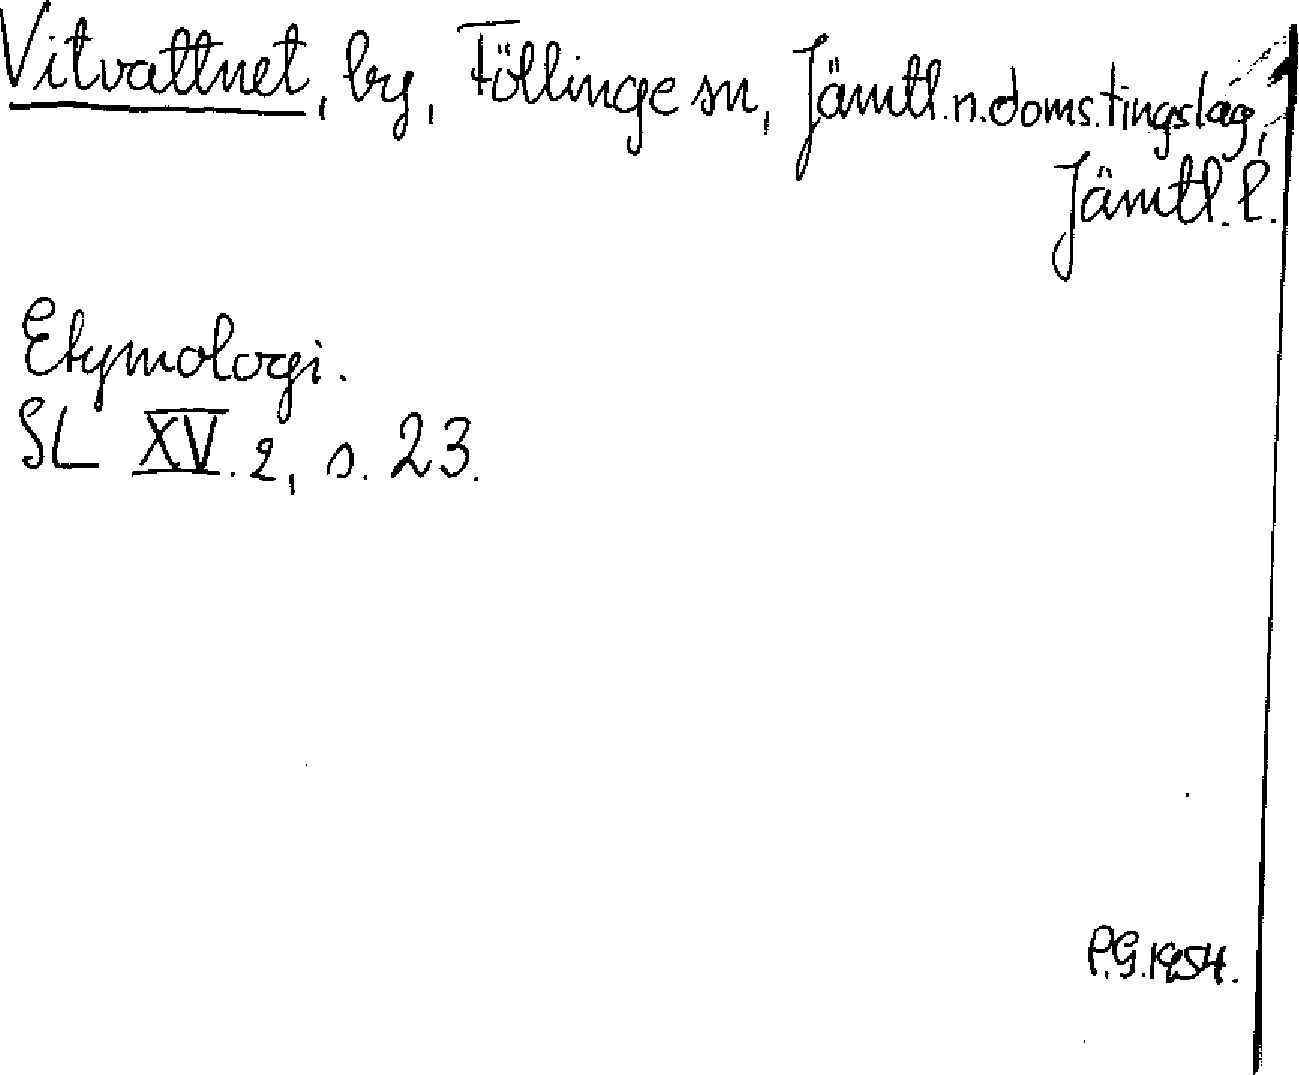 Vitvattnet, by, Föllinge sn, Jämtl. n. doms. tingslag,
Jämtl. l.
Etymologi.
SL XV. 2, s. 23.
P.G. 1954.